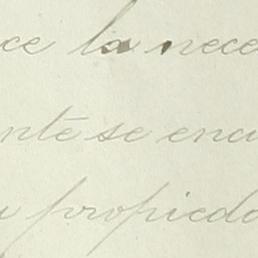 ce la nece
nte se encu
u propieda